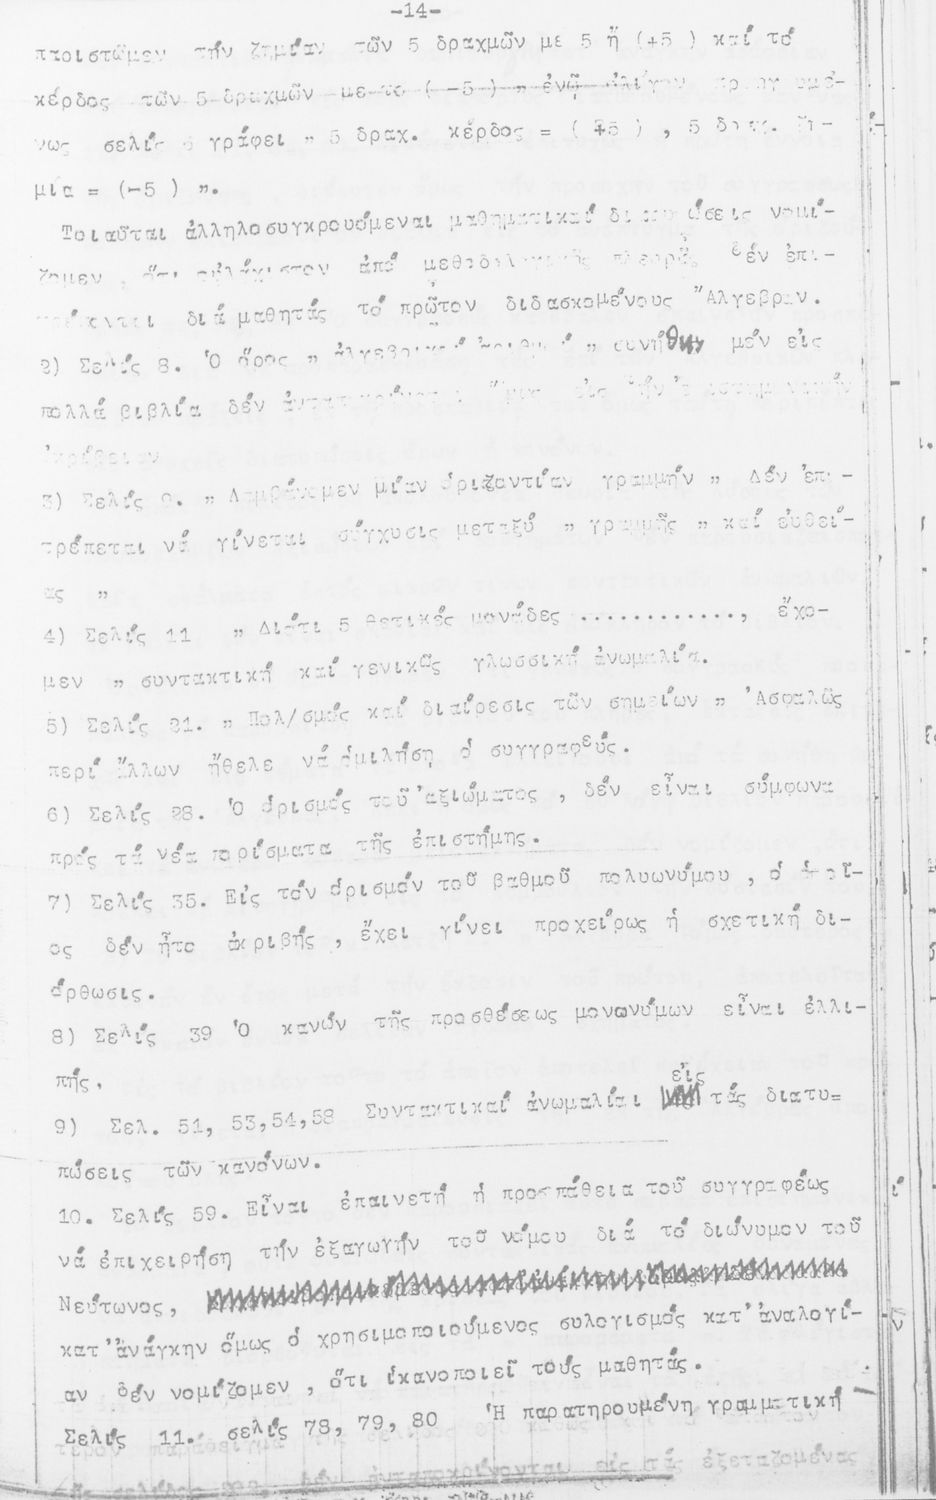 -14-
παριστῶμεν τήν ζημίαν τῶν 5 δραχμῶν με 5 ἤ (+5 ) καί τό
κέρδος τῶν 5 δραχμῶν με το ( -5 ) " ἐνῷ ὀλίγον προηγουμέ-
νως σελίς 6 γράφει " 5 δραχ. κέρδος = ( +5 ) , 5 δραχ. ζη-
μία = (-5 ) ".
Τοιαῦται ἀλληλοσυγκρουόμεναι μαθηματικαί διατυπώσεις νομί-
ζομεν , ὅτι ἀπό μεθοδολογικῆς πλευρᾶς δέν ἐπι-
διά μαθητάς τό πρῶτον διδασκομένους "Αλγεβραν.
2) Σελίς 8. Ὁ ὅρος " ἀλγεβρικοί ἀριθμοί " συνήθης μέν εἰς
πολλά βιβλία δέν ἀνταποκρίνεται ὅμως εἰς τήν ἐπιστημονικήν
ἀκρίβειαν
3) Σελίς 9. " Λαμβάνομεν μίαν ὁριζοντίαν γραμμήν " Δέν ἐπι-
τρέπεται νά γίνεται σύγχυσις μεταξύ " γραμμῆς " καί εὐθεί-
ας "
4) Σελίς 11 " Διότι 5 θετικές μονάδες ............, ἔχο-
μεν " συντακτική καί γενικῶς γλωσσική ἀνωμαλία.
5) Σελίς 21. " Πολ/σμός καί διαίρεσις τῶν σημείων " Ἀσφαλῶς
περί ἄλλων ἤθελε νά ὁμιλήση ὁ συγγραφεύς.
6) Σελίς 28. Ὁ ὁρισμός τοῦ ἀξιώματος , δέν εἶναι σύμφωνα
πρός τά νέα πορίσματα τῆς ἐπιστήμης.
7) Σελίς 35. Εἰς τόν ὁρισμόν τοῦ βαθμοῦ πολυωνύμου , ὁ ὁποῖ-
ος δέν ἦτο ἀκριβής , ἔχει γίνει προχείρως ἡ σχετική δι-
όρθωσις.
8) Σελίς 39 Ὁ κανών τῆς προσθέσεως μονωνύμων εἶναι ἐλλι-
πής.
9) Σελ. 51, 53,54,58 Συντακτικαί ἀνωμαλίαι εἰς τάς διατυ=
πώσεις τῶν κανόνων.
10. Σελίς 59. Εἶναι ἐπαινετή ἡ προσπάθεια τοῦ συγγραφέως
νά ἐπιχειρήση τήν ἐξαγωγήν τοῦ νόμου διά τό διώνυμον τοῦ
Νεύτωνος,
κατ' ἀνάγκην ὅμως ὁ χρησιμοποιούμενος συλογισμός κατ' ἀναλογί-
αν δέν νομίζομεν , ὅτι ἱκανοποιεῖ τούς μαθητάς.
Σελίς 11. σελίς 78, 79, 80 Ἡ παρατηρουμένη γραμματική